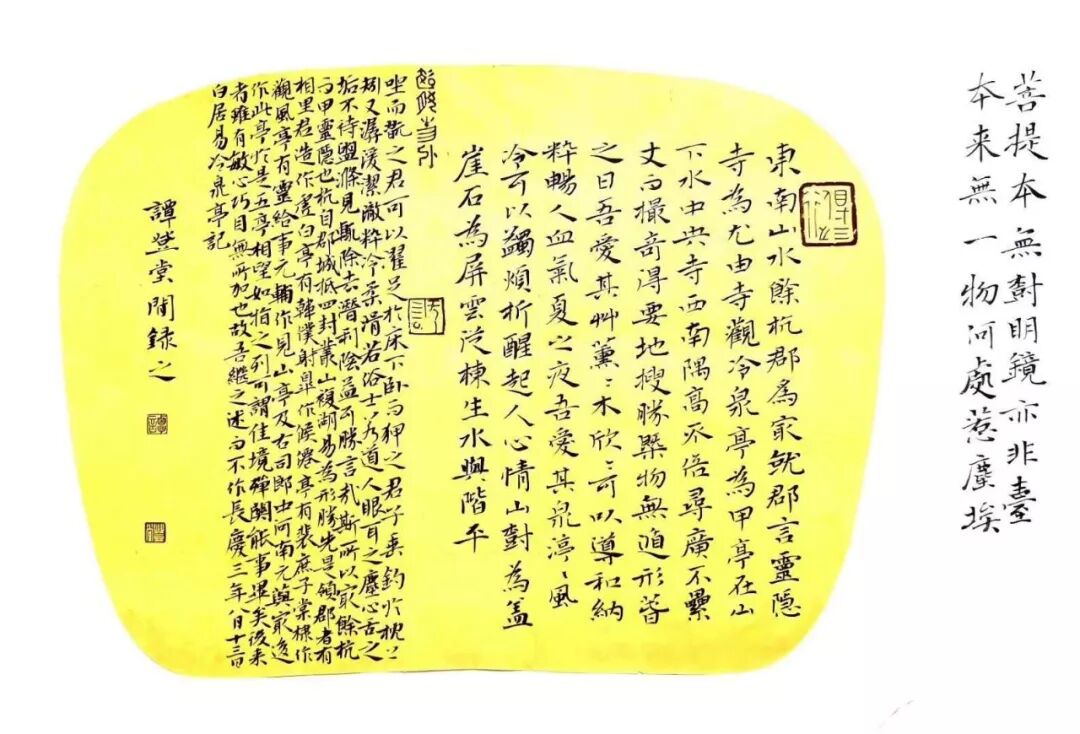 菩提本無尌明鏡亦非臺
本来無一物何處惹塵埃
東南山水餘杭郡為㝡就郡言靈隱
寺為尤由寺觀冷泉亭為甲亭在山
下水中央寺西南隅高不倍尋廣不累
丈而撮奇得要地搜勝槩物無遁形春
之日吾愛其艸薰〻木欣〻可以導和納
粹暢人血氣夏之夜吾愛其泉渟〻風
冷可以蠲煩析醒起人心情山尌為盖
崖石為屏雲從棟生水與階平
坐而翫之者可以濯足於床下卧而狎之者可垂釣於枕上
矧又潺湲潔澈粹冷柔滑若俗士若道人眼耳之塵心舌之
垢不待盥滌見輒除去潛利陰益可勝言哉斯所以㝡餘杭
而甲靈隱也杭自郡城抵四封叢山複湖易為形勝先是領郡者有
相里君造作虛白亭有韓僕射皋作候僊亭有裴庶子棠棣作
觀風亭有靈給事元輔作見山亭及右司郎中河南元藇㝡後
作此亭於是五亭相望如指之列可謂佳境殫關能事畢矣後来
者雖有敏心巧目無所加也故吾繼之述而不作長慶三年八月十三日
白居易冷泉亭記
譚堂閣録之